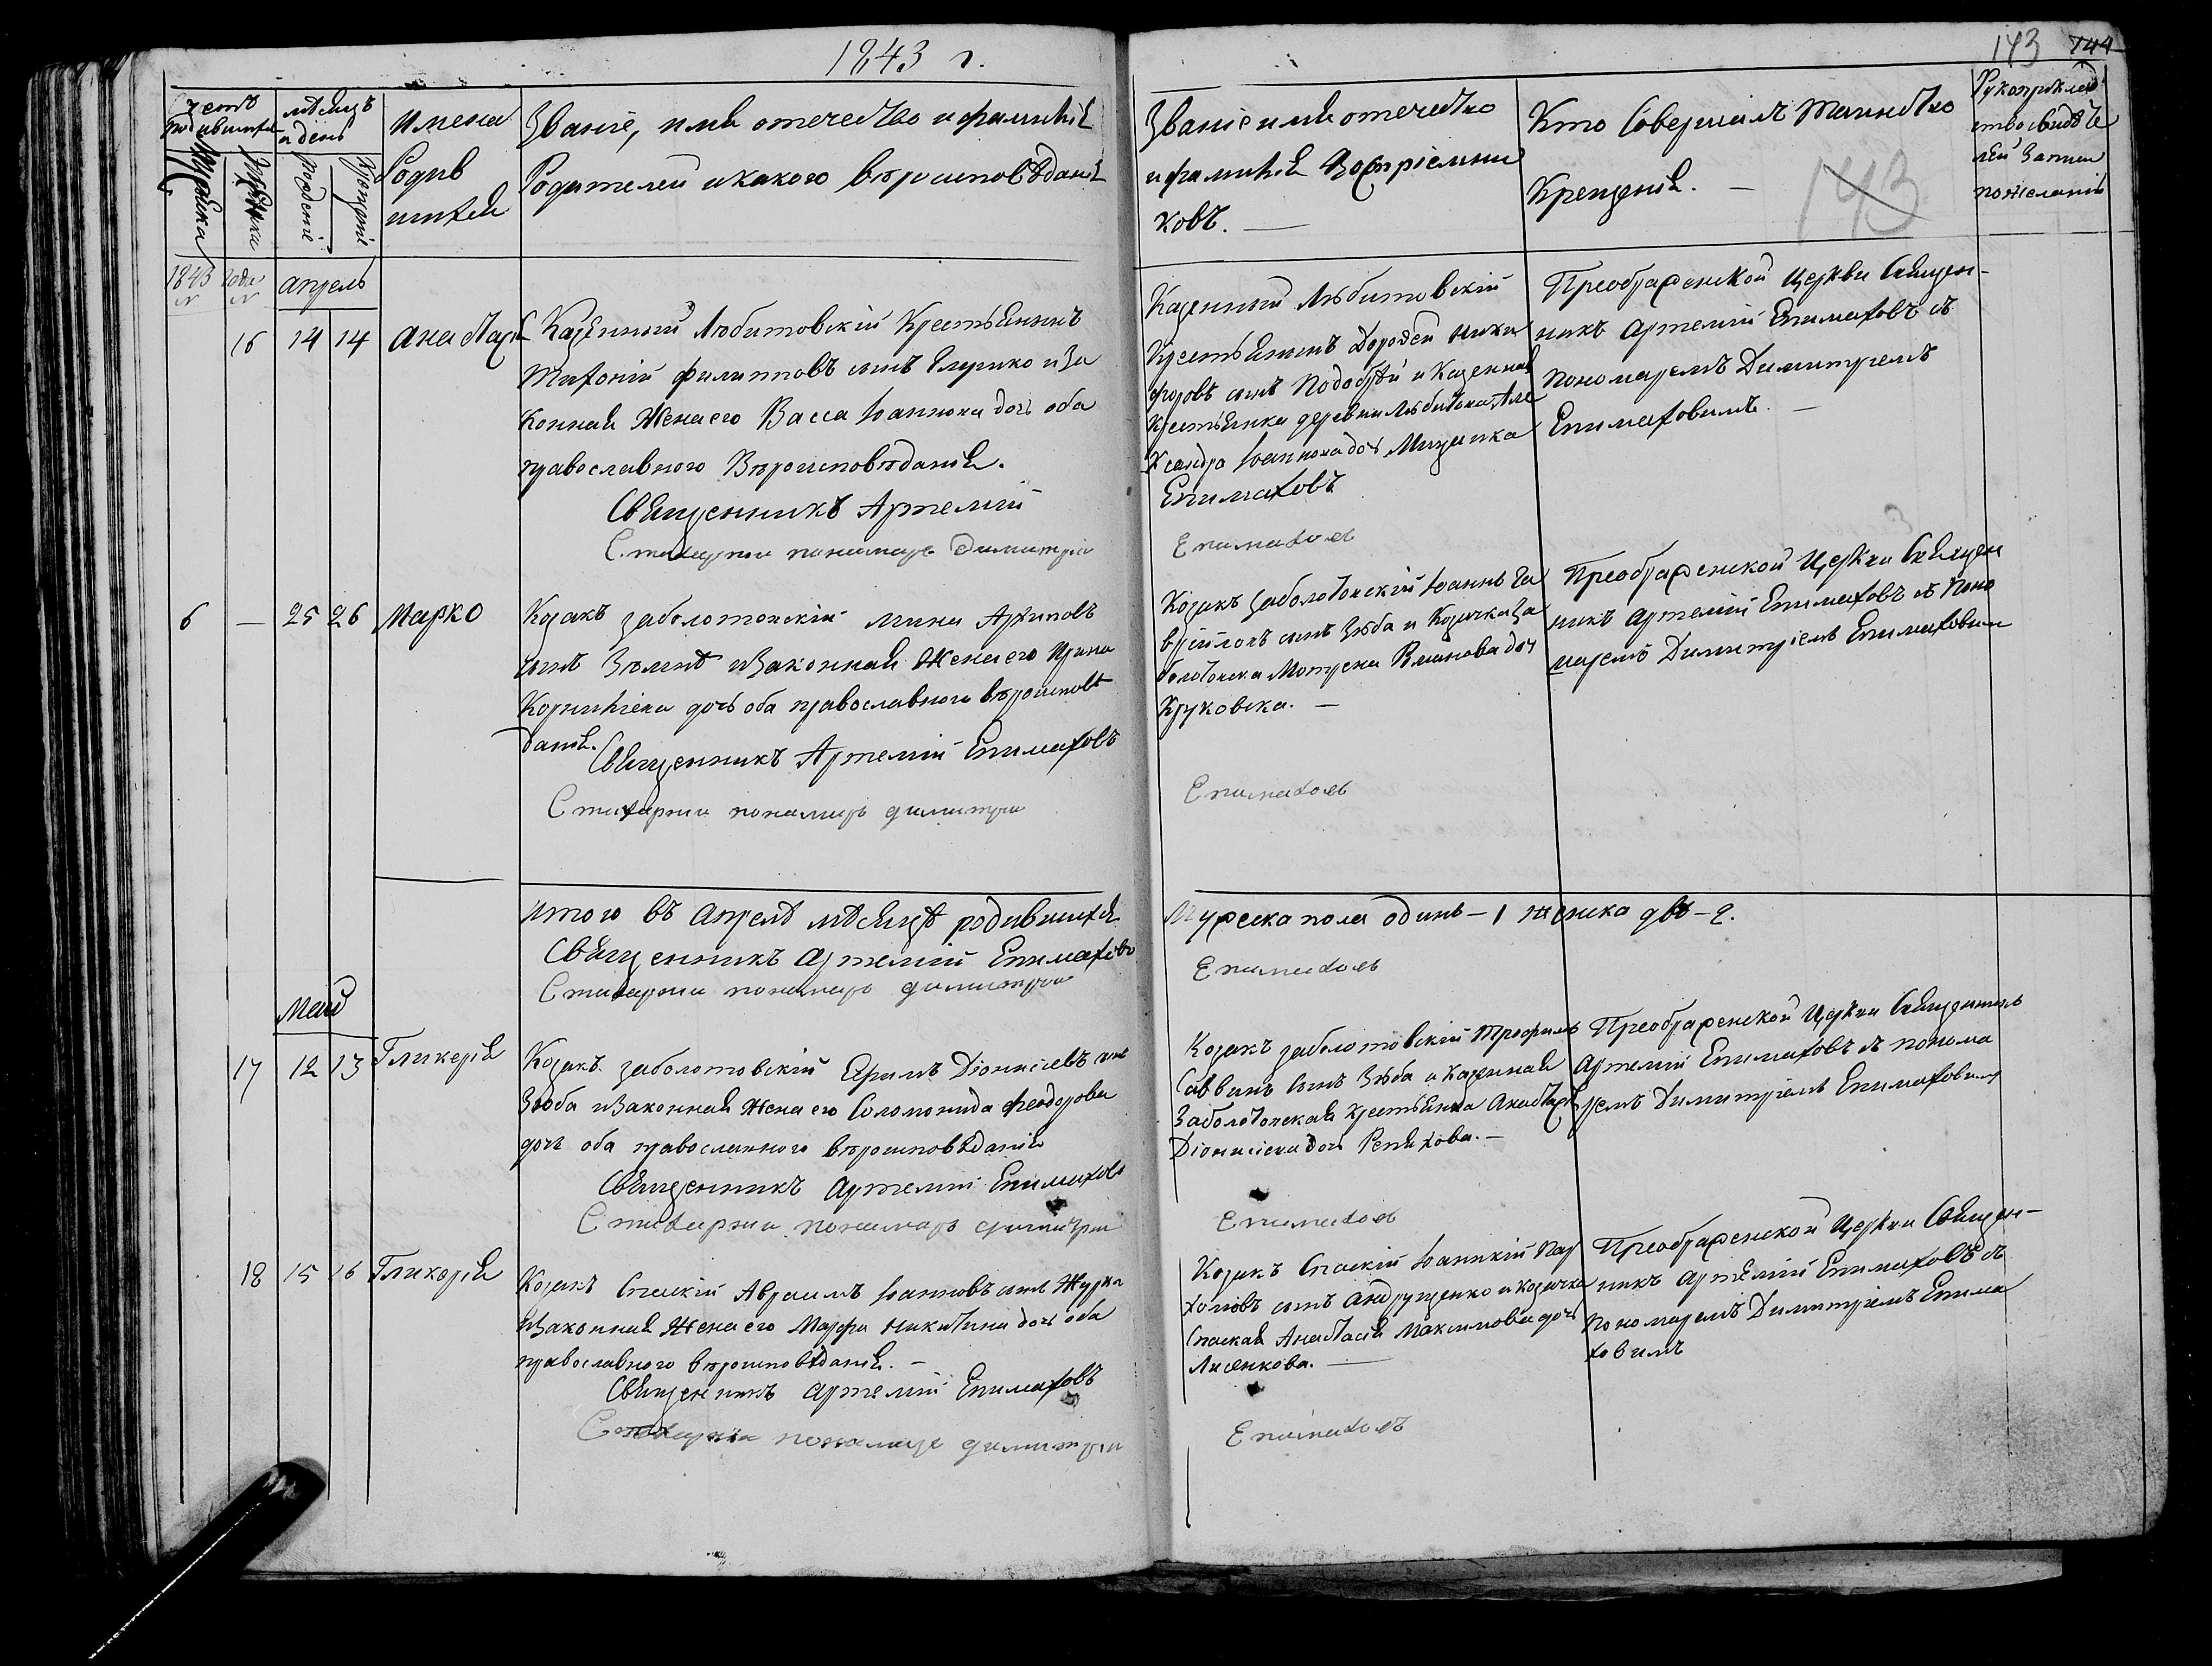 1843 г.
143 144
Счетъ родившихся
мѣсяцъ и день
имена Родив шихся
Званіе, имя отечество и фамилія
Родителей и какого вѣроисповѣданія
Званіе имя отечество
и фамилія Воспріемни
ковъ. —
Кто Совершалъ Таинство
Крещенія. —
143
Рукоприклад
ство свидѣте
лей Записи
по желанію
Мужеска
Женска
рожденіе
Крещеніе
1843 года
апрель
16 14 14 Анастасія
Казенный Любитовскій Крестьянинъ
филипповъ сынъ и За
конная Жена его Васса Іоаннова дочь оба
православного Вѣроисповѣданія.
Священникъ Артемій
Стихарный пономарь Димитрій
Казенный Любитовскій
Крестьянинъ Дорофей Ники
форовъ сынъ и Казенная
Крестьянка деревни Любитова Але
ксандра Іоаннова дочь
Епимаховъ
Епимаховъ
Преображенской Церкви Священ-
никъ Артемій Епимаховъ съ
пономаремъ Димитріемъ
Епимаховымъ. —
6 — 25 26 Марко
Козакъ заболотовскій Мина Архиповъ
сынъ и Законная Жена его Ирина
Корниліева дочь оба православного вѣроисповѣ
данія.
Священникъ Артемій Епимаховъ
Стихарный пономарь димитрій
Козакъ Заболотовскій Іоаннъ Га
вріиловъ сынъ Зюба и Козачка За
болотовска Мотрена дочь
Круковска. —
Епимаховъ
Преображенской Церкви Священ
никъ Артемій Епимаховъ съ Поно
маремъ Димитріемъ Епимаховым
Итого въ Апрелѣ мѣсяцѣ родившихся
Мужеска пола одинъ — 1 женска двѣ — 2.
Священникъ Артемій Епимаховъ
Стихарный пономарь димитрій
Епимаховъ
Май
17 12 13 Гликерія
Козакъ заболотовскій Ефимъ Діонисіевъ сынъ
Зюба и Законная Жена его Соломонида Феодорова
дочь оба православного вѣроисповѣданія
Священникъ Артемій Епимаховъ
Стихарный пономарь димитрій
Козакъ заболотовскій Трофимъ
Саввинъ сынъ Зюба и Казенная
Заболотовская крестьянка Анастасія
Діонисіева дочь Репяхова. —
Епимаховъ
Преображенской Церкви Священникъ
Артемій Епимаховъ съ понома
ремъ Димитріемъ Епимаховымъ
18 15 16 Гликерія
Козакъ Спаскій Авраамъ Іоанновъ сынъ Журба
и Законная Жена его Марфа Никитина дочь оба
православного вѣроисповѣданія. —
Священникъ Артемій Епимаховъ
Стихарный пономарь димитрій
Козакъ Спаскій Іоанникій Пар
ховъ сынъ Андрущенко и козачка
Спаская Анастасія Максимова дочь
Лисенкова. —
Епимаховъ
Преображенской Церкви Священ-
никъ Артемій Епимаховъ съ
Пономаремъ Димитріемъ Епима
ховымъ